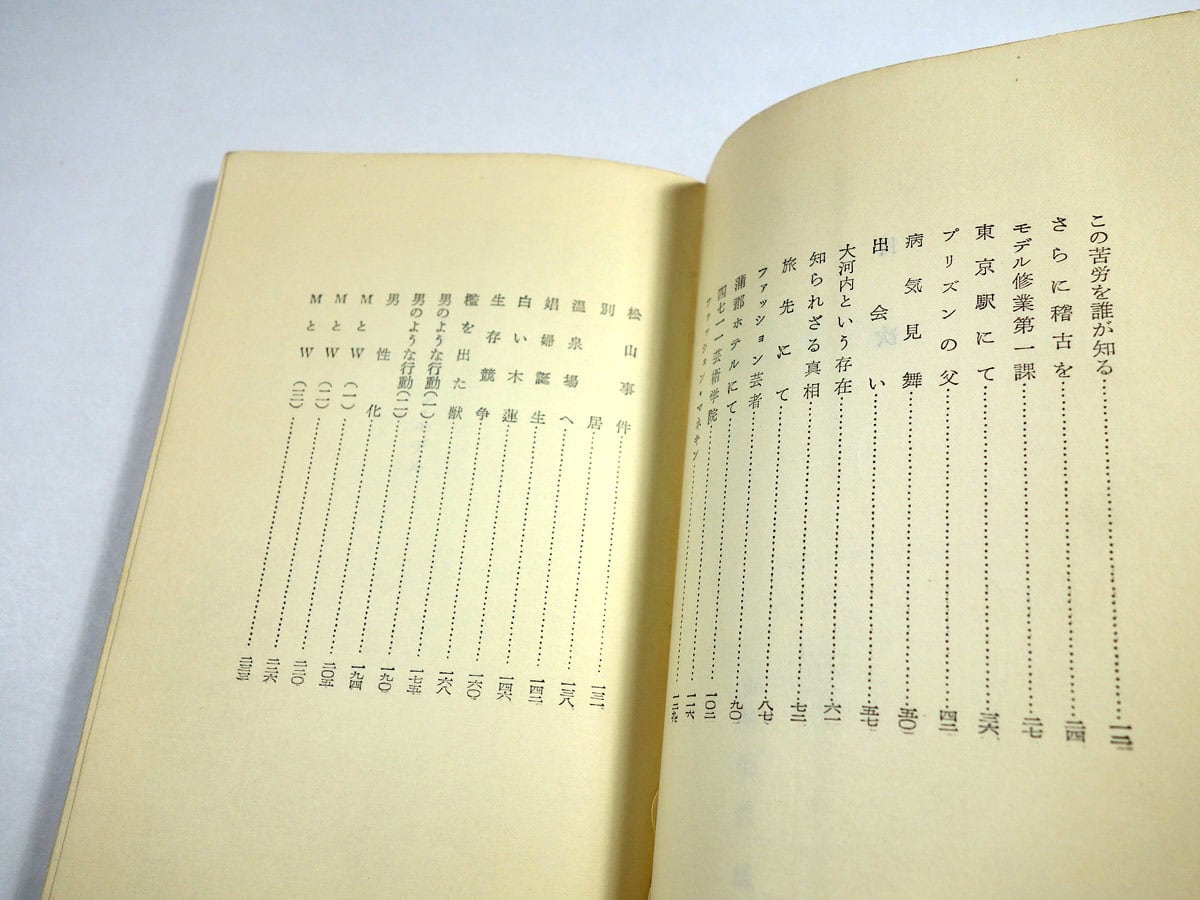 この苦労を誰が知る……………
さらに稽古を……………二四
モデル修業第一課……………二七
東京駅にて……………三六
プリズンの父……………四二
病気見舞……………五〇
出会い……………五七
大河内という存在……………六一
知られざる真相……………七二
旅先にて……………八七
ファッション芸者……………九〇
蒲郡ホテルにて……………一〇二
四七一一芸術学院……………一一六
ファッション・マネキン……………
松山事件……………一三一
別居……………一三八
温泉場へ……………一四二
娼婦誕生……………一四六
白い木蓮……………一六〇
生存競争……………一六八
檻を出た獣……………一七五
男のような行動(一)……………一九〇
男のような行動(二)……………一九四
男性化……………二〇五
MとW(一)……………
MとW(二)……………二二六
MとW(三)……………